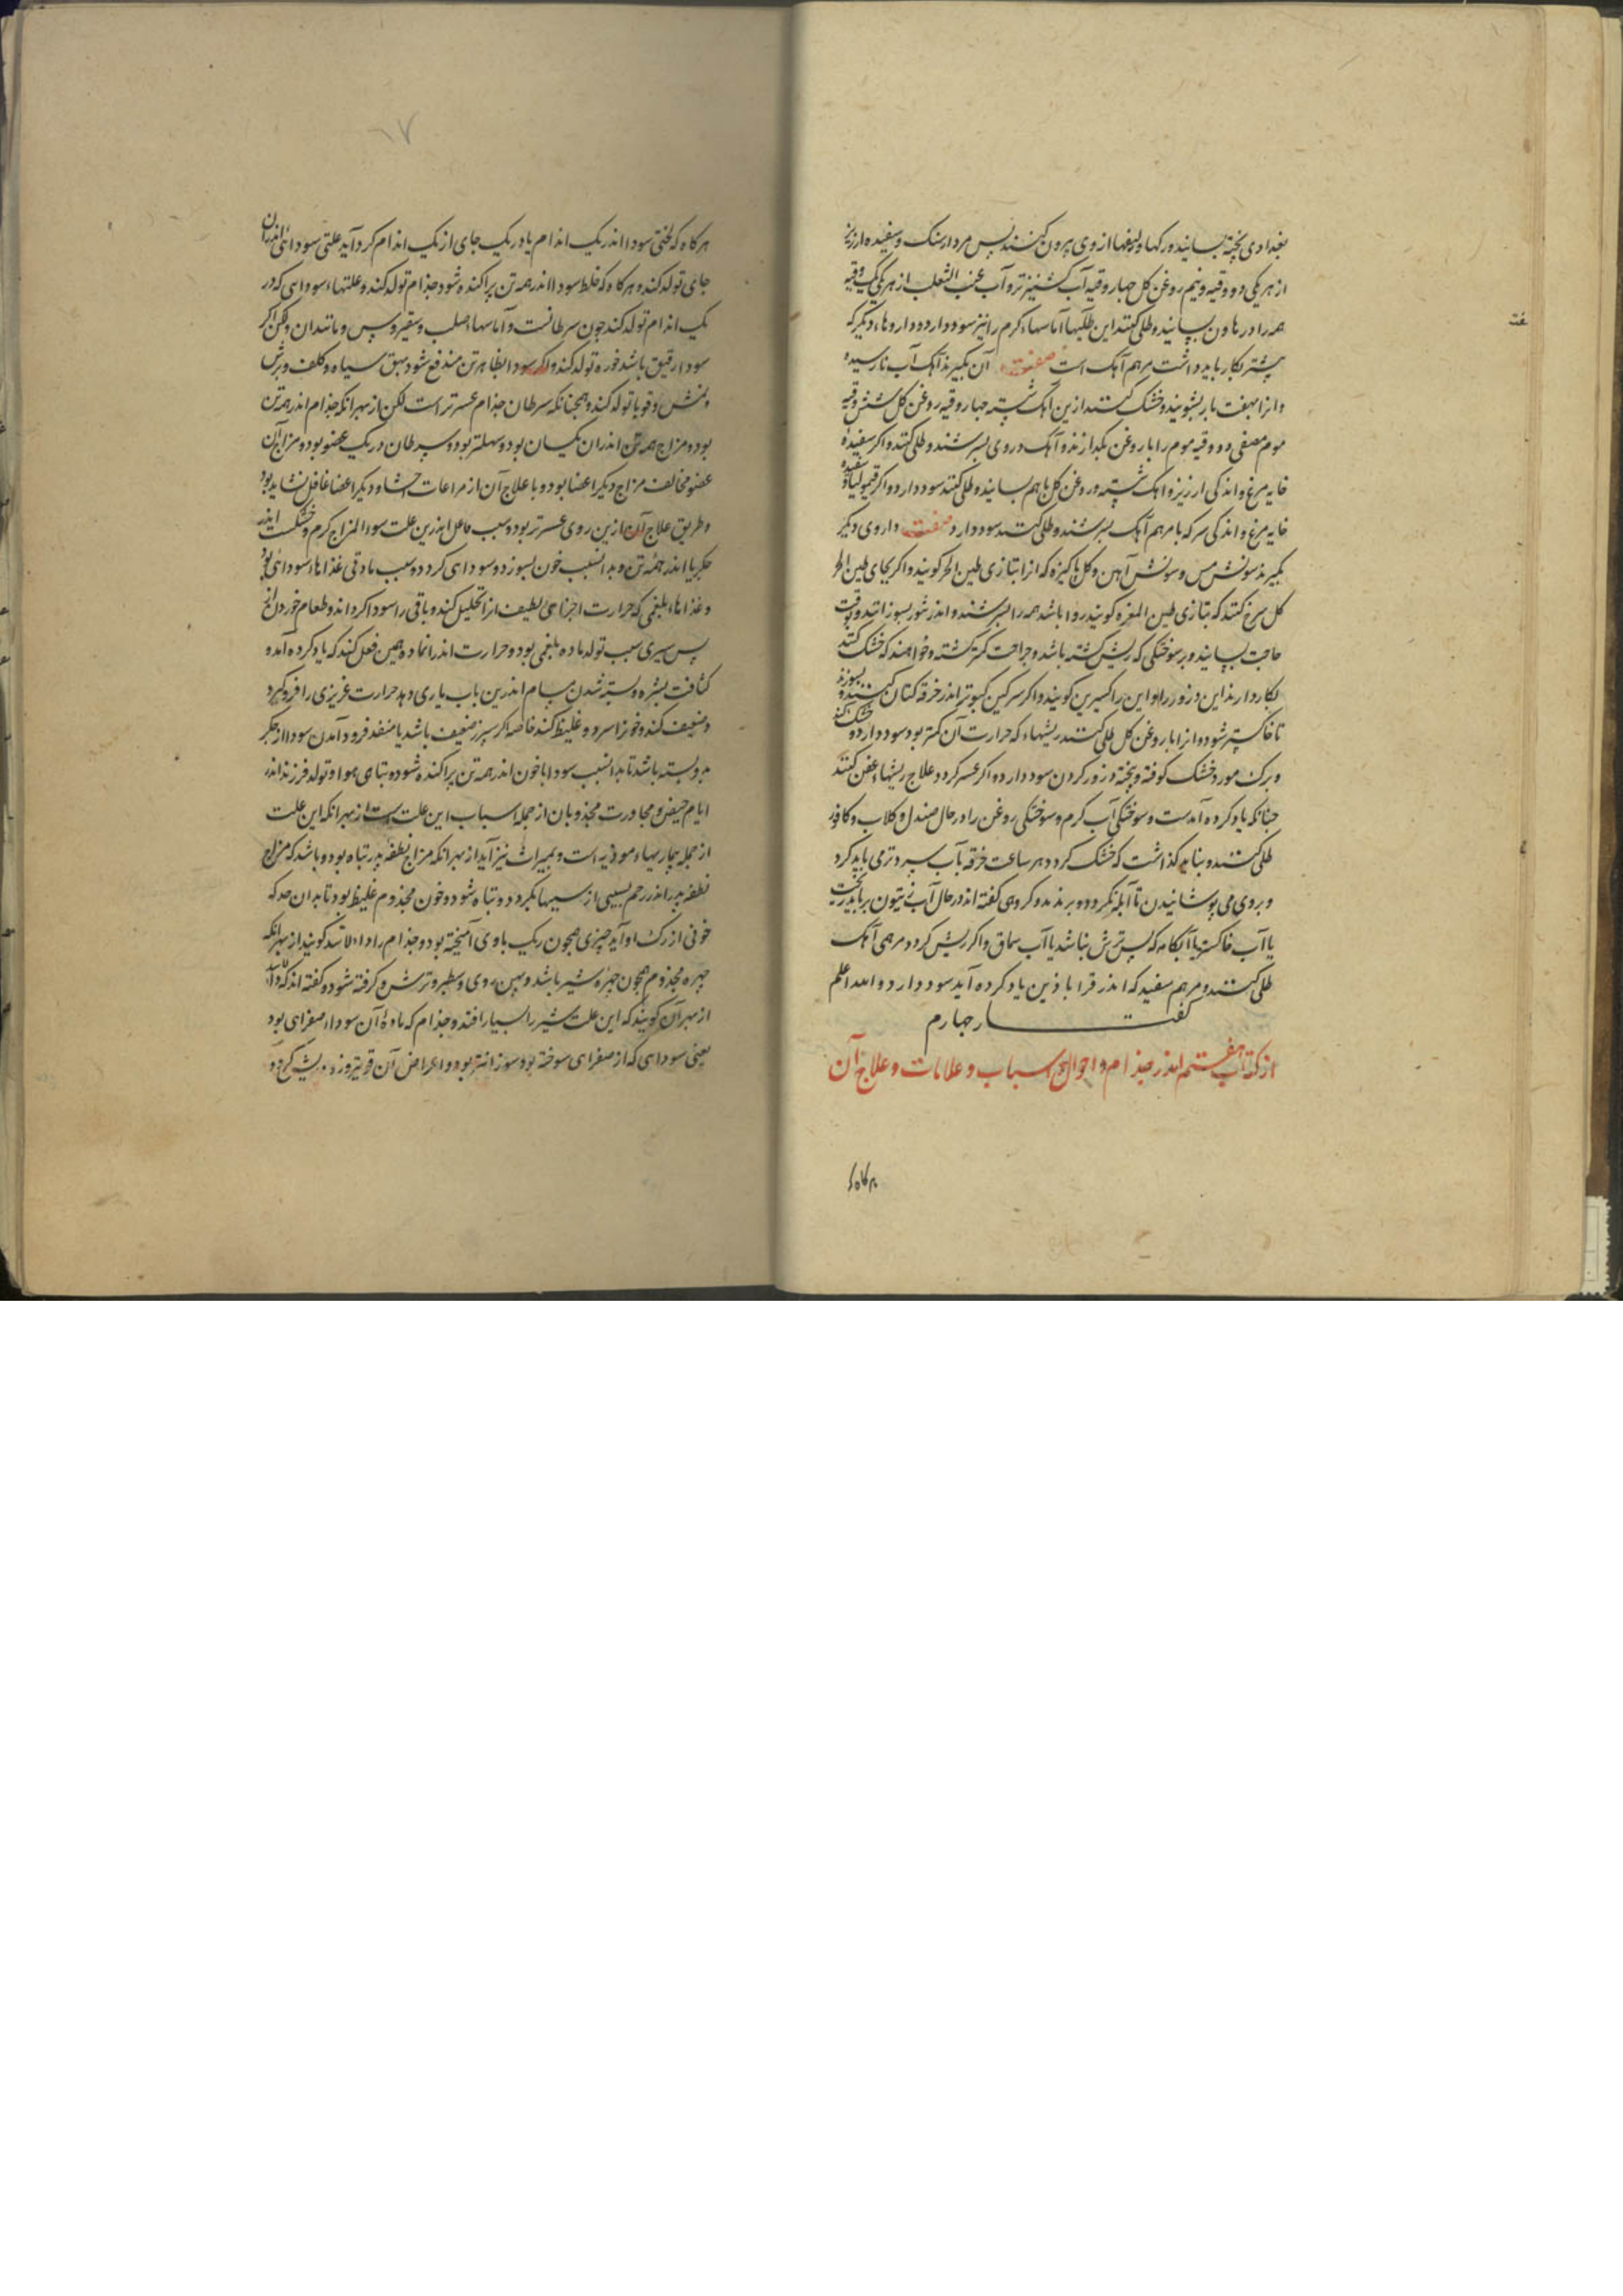 بغدادی پخته بسایند و رکها و لیفها از وی بیرون کنند پس مردارسنک و سفیده ارزیز
از هر یکی دو وقیه و نیم روغن کل چهار وقیه آب کشنیز تر و آب عنب الثعلب از هر یکی یک وقیه
همه را در هاون بسایند و طلی کنند این طلیها آماسهاء کرم را نیز سود دارد و داروهاء دیکر که
بیشتر بکار باید داشت مرهم آهک است صفت آن بکیرند آهک آب نارسیده
و انرا بهفت بار بشویند و خشک کنند ازین آهک شسته چهار وقیه روغن کل شش وقیه
موم مصفی دو وقیه موم را با روغن بکدازند و آهک در وی بسرشند و طلی کنند و اکر سفیدهٔ
خایه مرغ و اندکی ارزیز و اهک شسته و روغن کل باهم بسایند و طلی کنند سود دارد و اکر قیمولیا و سفیده
خایه مرغ و اندکی سرکه با مرهم آهک بسرشند و طلی کنند سود دارد صفت داروی دیکر
بکیرند سونش مس و سونش آهن و کل پاکیزه که انرا بتازی طین الحر کویند و اکر بجای طین الحر
کل سرخ کنند که بتازی طین المغره کویند روا باشد همه را بسرشند و اندر تنور بسوزانند و بوقت
حاجت بسایند و بر سوختکی که ریش کشته باشد و جراحت کمتر کشته و خواهند که خشک کنند
بکار دارند این درزور را و این را اکسیرین کویند و اکر سرکین کبوتر اندر خرقه کتان کنند و بسوزند
تا خاکستر شود و انرا با روغن کل طلی کنند ریشهاء که حرارت آن کمتر بود سود دارد و خشک کند
و برک مورد خشک کوفته و بیخته درزور کردن سود دارد و اکر عسر کردد علاج ریشهاء عفن کنند
چنانکه یاد کرده آمدست و سوختکی آب کرم و سوختکی روغن را در حال صندل و کلاب و کافور
طلی کنند و نباید کذاشت که خشک کردد هر ساعت خرقه بآب سرد تر می باید کرد
و بر وی می پوشانیدن تا آبله نکردد و برندمد و کروهی کفته اند در حال آب زیتون بر باید ریخت
یا آب خاکستر یا آبکامه که بس ترش نباشد یا آب سماق و اکر ریش کردد مرهمی آهک
طلی کنند و مرهم سفید که اندر قراباذین یاد کرده آید سود دارد و الله اعلم
کفتـــار چهارم
از کتاب هفتم اندر جذام و احوال و اسباب و علامات و علاج آن
هرکاه
هرکاه که لختی سودا اندر یک اندام یا در یک جای از یک اندام کرد آید علتی سودائی اندران
جای تولد کند و هرکاه که خلط سودا اندر همه تن پراکنده شود جذام تولد کند و علتهاء سودایی که در
یک اندام تولد کند چون سرطانست و آماسهاء صلب و سقیروس و مانند ان و لکن اکر
سودا رقیق باشد خوره تولد کند و اکر سودا بظاهر تن مندفع شود بهق سیاه و کلف و برش
و نمش و قوبا تولد کند و همچنانکه سرطان جذام عسرتر است لکن از بهر انکه جذام اندر همه تن
بود و مزاج همه تن اندران یکسان بود و سهلتر بود و سرطان در یک عضو بود و مزاج آن
عضو مخالف مزاج دیکر اعضا بود و با علاج آن از مراعات احشا و دیکر اعضا غافل نشاید بود
و طریق علاج آن ازین روی عسرتر بود و سبب فاعل اندرین علت سوءالمزاج کرم و خشکست اندر
جکر یا اندر همهٔ تن و بدانسبب خون بسوزد و سودایی کردد و سبب مادتی غذاهاء سودائی بود
و غذاهاء بلغمی که حرارت اجزاهی لطیف انرا تحلیل کند و باقی را سودا کرداند و طعام خوردن از
پس سیری سبب تولد ماده بلغمی بود و حرارت اندر انماده همین فعل کند که یاد کرده آمد و
کثافت بشره و بسته شدن مسام اندرین باب یاری دهد حرارت غریزی را فرو کیرد
و ضعیف کند و خونرا سرد و غلیظ کند خاصه اکر سپرز ضعیف باشد یا منفذ فرود آمدن سودا از جکر
بدو بسته باشد تا بدانسبب سودا با خون اندر همه تن پراکنده شود و تباهی هوا و تولد فرزند اندر
ایام حیض و مجاورت مجذومان از جمله اسباب این علت است از بهر انکه این علت
از جمله بیماریهاء موذیه است و بمیراث نیز آید از بهر انکه مزاج نطفه پدر تباه بود و باشد که مزاج
نطفه پدر اندر رحم بسببی از سببها بکردد و تباه شود و خون مجذوم غلیظ بود تا بدان حد که
خونی از رک او آید چیزی همچون ریک با وی آمیخته بود و جذام را داء الاسد کویند از بهر انکه
چهره مجذوم همچون چهره شیر باشد و پهن روی و سطبر و ترش و کرفته شود و کفته اند که داء الاسد
از بهر آن کویند که این علت شیر را بسیار افتد و جذام که مادهٔ آن سوداء صفرایی بود
یعنی سودایی که از صفرای سوخته بود سوزانتر بود و اعراض آن قویتر و زود ریش کردد